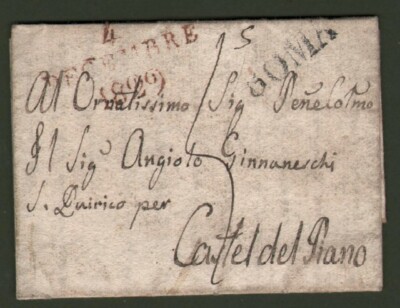 4
DECEMBRE
(1806)
ROMA
Al Ornatissimo Sig
Il Sig Angiolo Ginnaneschi
S. Quirico per
Castel del Piano